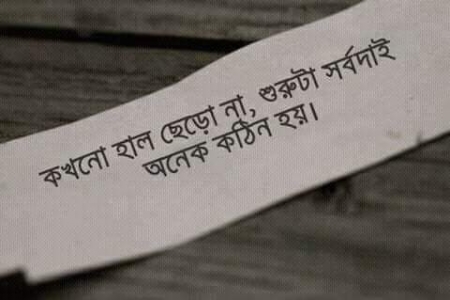 কখনো হাল ছেড়ো না, শুরুটা সর্বদাই
অনেক কঠিন হয়।